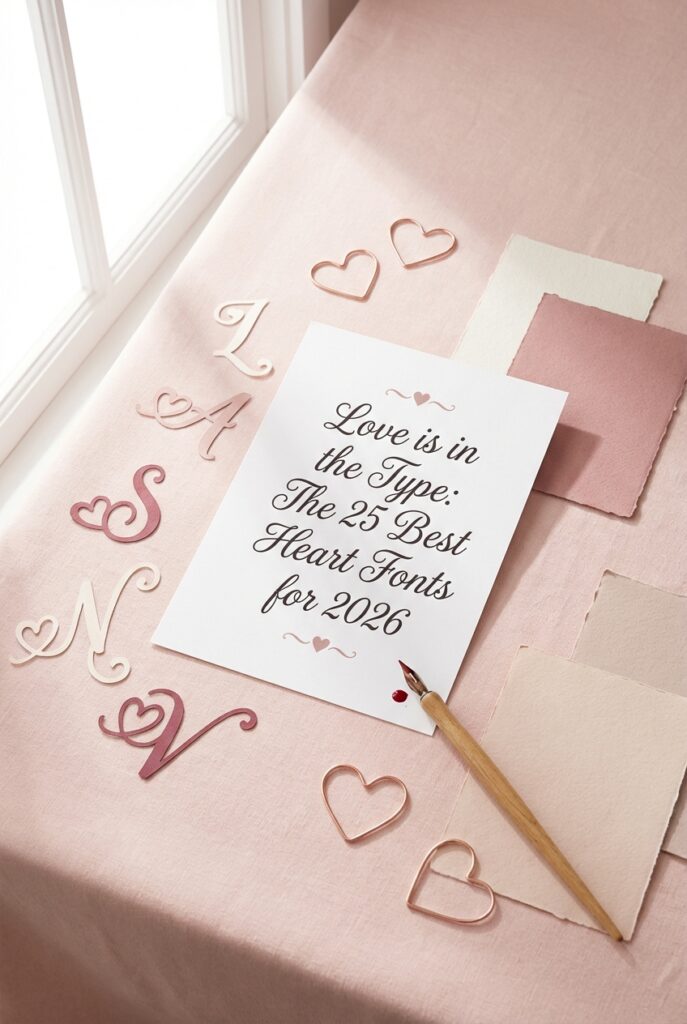 L
A
S
N
V
Love is in
the Type:
The 25 Best
Heart Fonts
for 2026